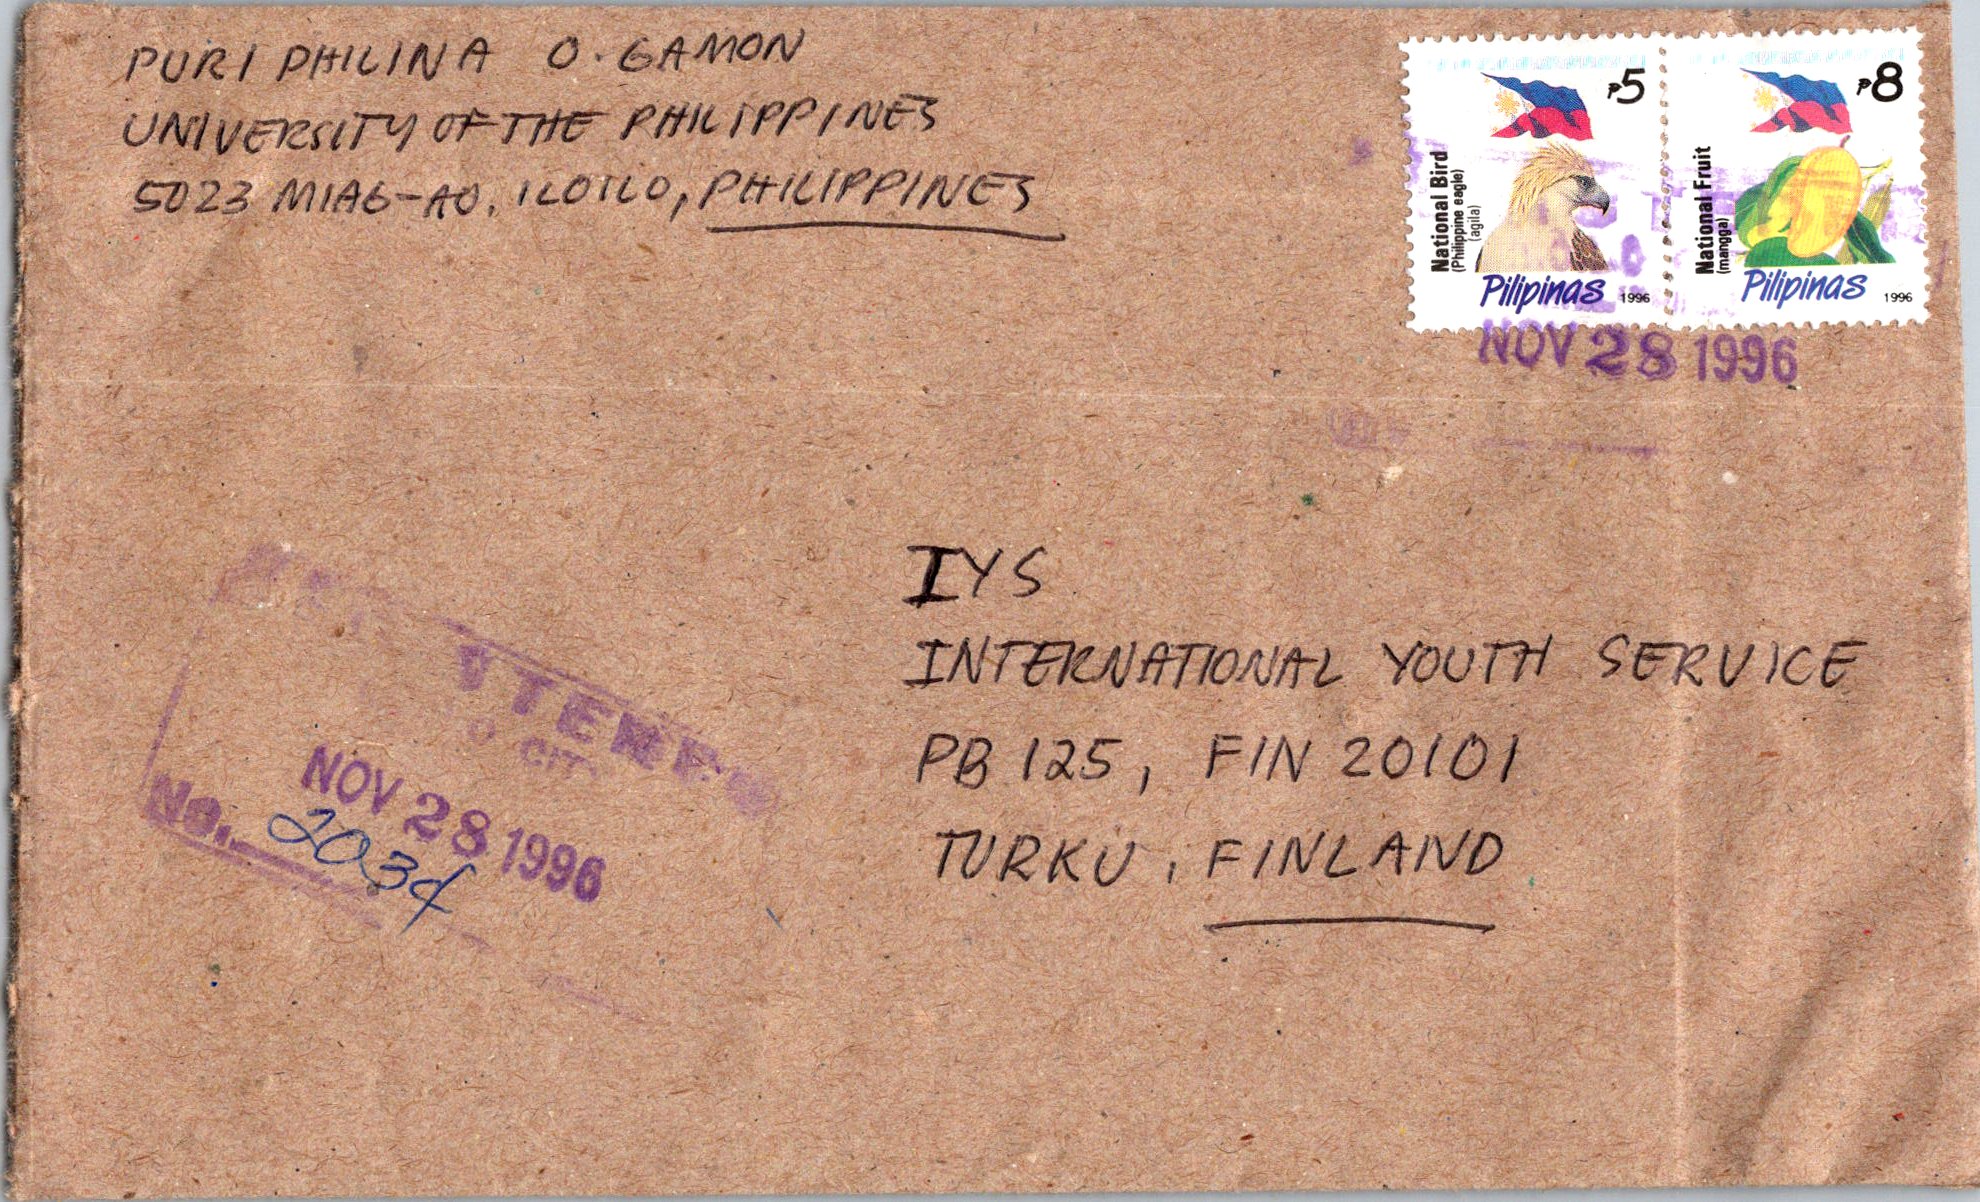 PURI PHILINA O. GAMON
UNIVERSITY OF THE PHILIPPINES
5023 MIAG-AO, ILOILO, PHILIPPINES
₱5
National Bird
(Philippine eagle)
(agila)
Pilipinas 1996
₱8
National Fruit
(mangga)
Pilipinas 1996
NOV 28 1996
IYS
INTERNATIONAL YOUTH SERVICE
PB 125, FIN 20101
TURKU, FINLAND
CITY
NOV 28 1996
No. 2034